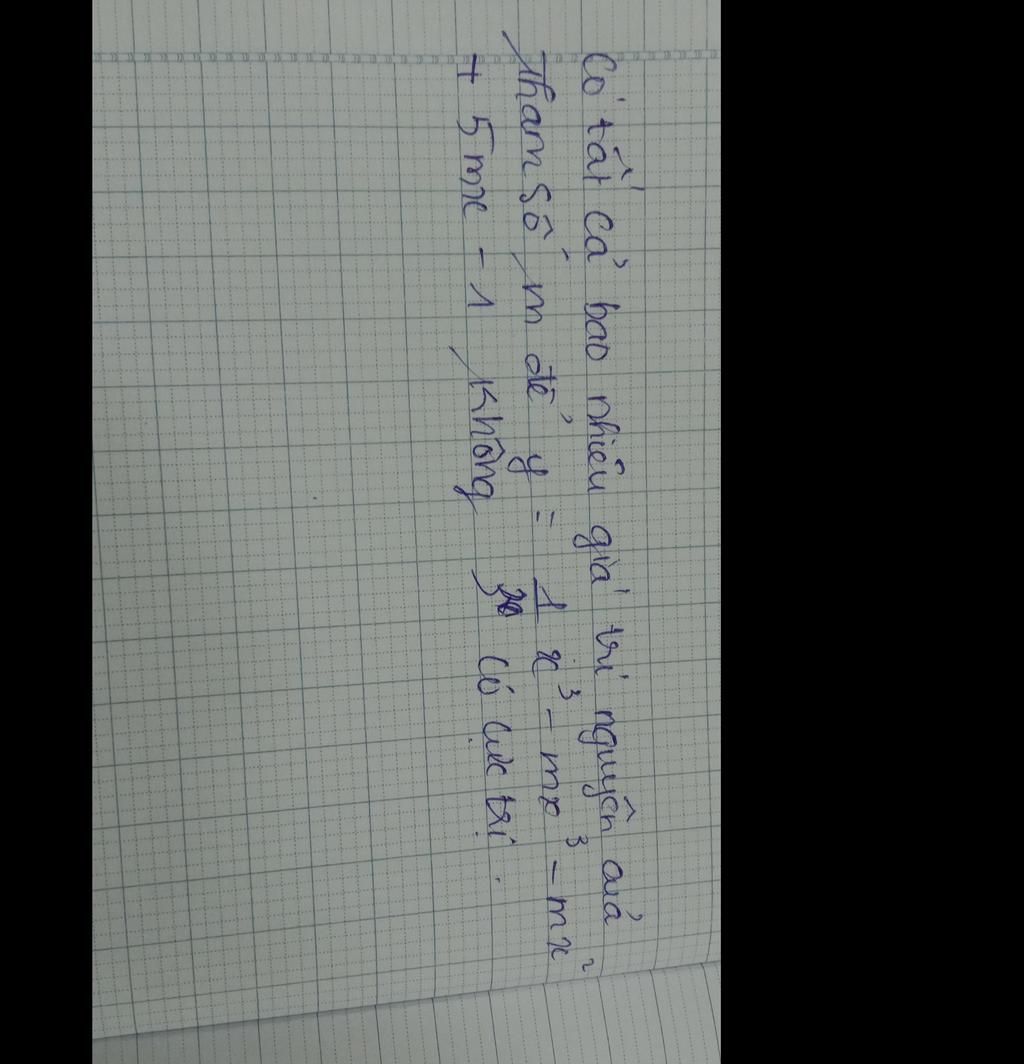 Có tất cả bao nhiêu giá trị nguyên của
tham số m để y = 1/3 x³ - mx³ - mx²
+ 5mx - 1 không có cực trị.